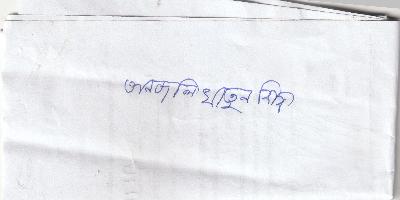 আনজালি খাতুন শিখা